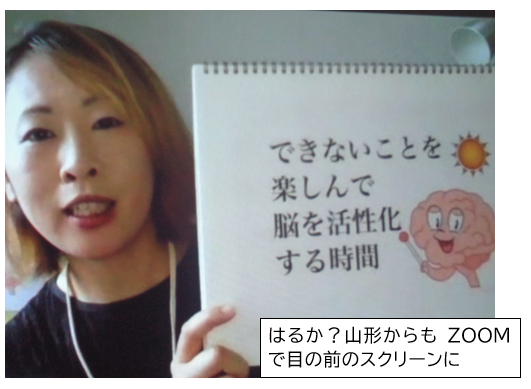 できないことを
楽しんで
脳を活性化
する時間
はるか？山形からも ZOOM
で目の前のスクリーンに